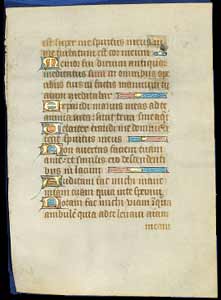 est super me spiritus meus in
me turbatum est cor meum
Memor fui dierum antiquorum
meditatus sum in omnibus ope
ribus tuis in factis manuum tu
arum meditabar
Expandi manus meas ad te
anima mea sicut terra sine aq
Velociter exaudi me domine
spiritus meus
Non avertas faciem tuam
a me et similis ero descendenti
bus in lacum
Auditam fac michi mane
tuam quia in te speravi
Notam fac michi viam in qua
ambulem quia ad te levavi animam
meam